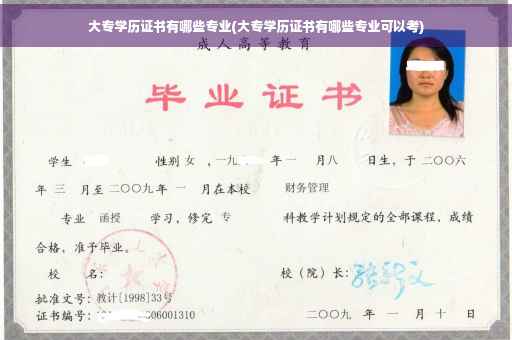 大专学历证书有哪些专业(大专学历证书有哪些专业可以考)
成人高等教育
毕业证书
学生 性别 女 ，一九 年一 月八 日生，于二〇〇六
年 三 月至二〇〇九年 一 月在本校 财务管理
专业 函授 学习，修完 专 科教学计划规定的全部课程，成绩
合格，准予毕业。
校 名： 校（院）长：
批准文号：教计[1998]33号
证书编号： 006001310 二〇〇九 年 一 月 十 日